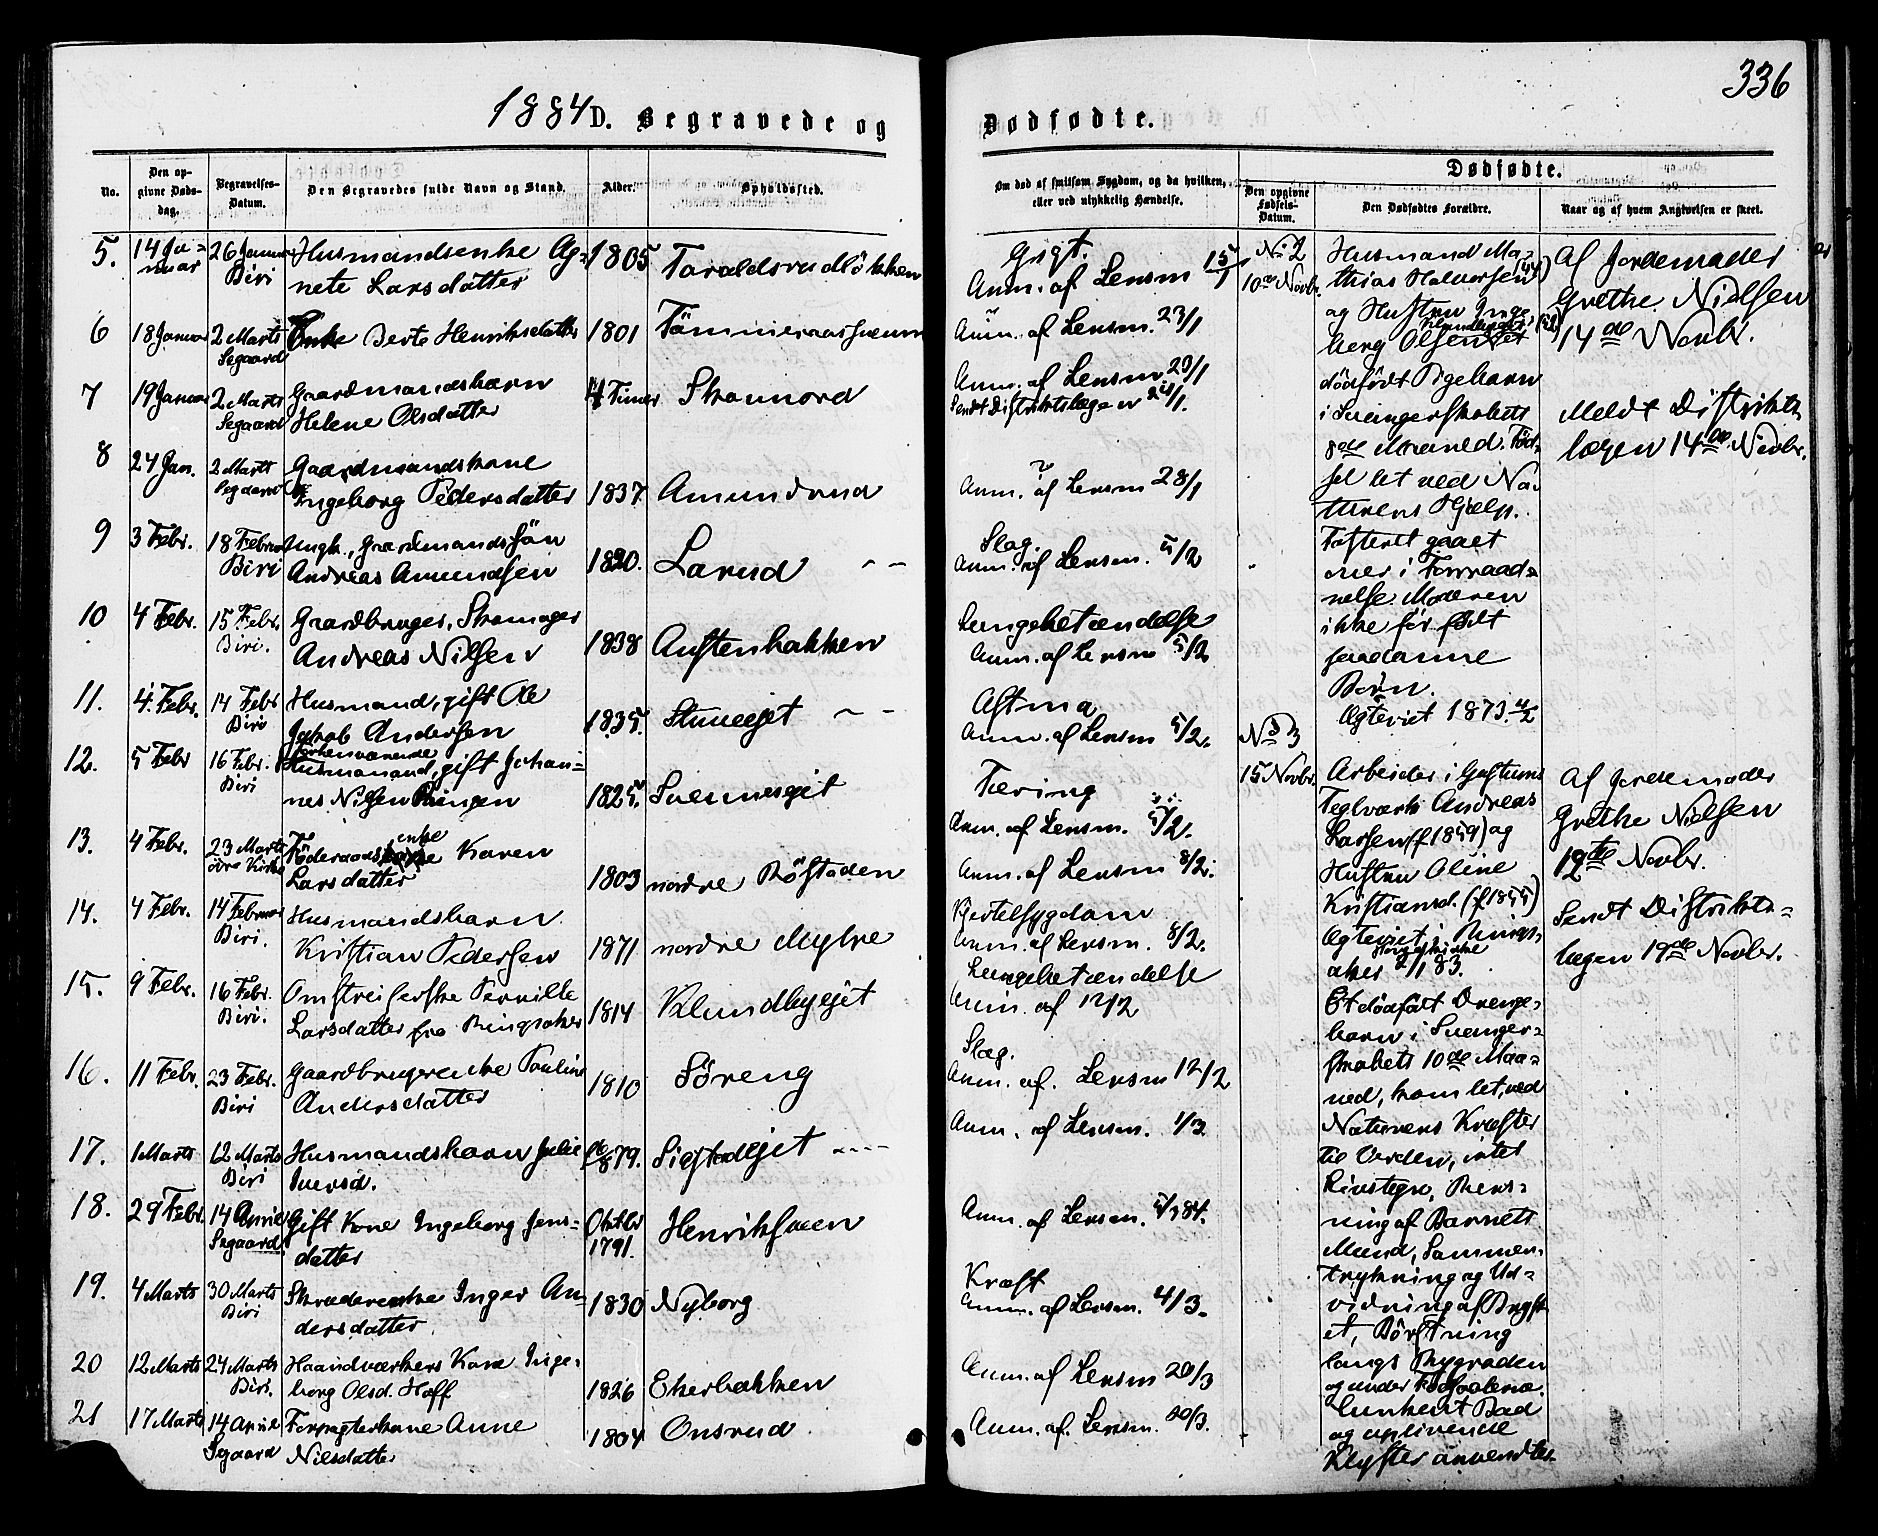 336
1884 D. Begravede og Dødfødte.
No.
Den op-
givne Døds-
dag.
Begravelses-
Datum.
Den Begravedes fulde Navn og Stand.
Alder.
Opholdssted.
Om død af smitsom Sygdom, og da hvilken,
eller ved ulykkelig Hændelse.
Dødfødte.
Den opgivne
Fødsels-
Datum.
Den Dødfødtes Forældre.
Naar og af hvem Angivelsen er skeet.
5. 14 Ja= 26 Januar Husmandsenke Ag= 1805 Taraldsrudløkken Gigt.
nuar Biri nete Larsdatter Anm. af Lensm 15/1
6 18 Januar 2 Marts Enke Berte Henriksdatter 1801
Segaard Anm. af Lensm. 23/1
7 19 Januar 2 Marts Gaardmandsbarn 4 Timer Skannord Anm. af Lensm 23/1
Segaard Helene Olsdatter Sendt Distriktslægen
8 24 Jan. 2 Marts Gaardmandskone
Segaard Ingeborg Pedersdatter 1837 Amundrud ? Anm. af Lensm 28/1
9 3 Febr. 18 Februar Ungk., Gaardmandssøn Slag.
Biri Andreas Amundsen 1820. Larud Anm. af Lensm. 5/2
10 4 Febr. 15 Febr. Gaardbruger, Skomager Lungebetændelse
Biri. Andreas Nilsen 1838 Austenbakken Anm. af Lensm 5/2
11. 4. Febr. 14 Febr Husmand, gift Ole Astma
Biri Jakob Andersen 1835. Stueejet Anm. af Lensm 5/2.
12. 5 Febr 16 Febr. Husmanand, gift Johan= Tæring
Biri nes Nilsen Ringen 1825. Svennesejet Anm. af Lensm. 5/2.
13. 4 Febr. 23 Marts Føderaadsenke Karen
Larsdatter 1803 nordre Røstaden Anm. af Lensm 8/2.
14. 4 Febr. 14 Februar Husmandsbarn Kjertelsygdom
Biri. Kristian Pedersen 1871 nordre Myhre Anm. af Lensm. 8/2.
15. 9 Febr. 16 Febr. Omstreiferske Pernille Lungebetændelse
Biri. Larsdatter fra Ringsaker 1814 Klundbyejet Anm. af 12/2
16. 11 Febr. 23 Febr. Gaardbrugerenke Pauline Slag.
Biri Andersdatter 1810 Søreng Anm. af. Lensm 12/2
17. 1 Marts 12 Marts Husmandsbarn Julie Anm. af Lensm. 1/3.
Biri Iversd. 79. Sigstadejet
18. 29 Febr. 14 April Gift Kone Ingeborg Jens= Oktbr Henriksveen Anm. af Lensm. 5/3 84.
Segaard datter 1791.
19. 4 Marts 30 Marts Skræderenke Inger An= Kræft
Biri dersdatter 1830 Nyborg Anm. af Lensm. 4/3.
20 12 Marts 24 Marts Haandværkers Kone Inge=
Biri. borg Olsd. Hoff 1826 Ekerbakken Anm. af Lensm 20/3
21 17 Marts 14 April Forpagterkone Anne
Segaard Nilsdatter 1804 Onsrud Anm. af. Lensm. 20/3.
No 2
10de Novbr.
Husmand Ma=
thias Halvorsen (44)
og Hustru Inge=
berg Olsen
dødfødt Pigebarn
i Svangerskabets
8de Maaned. Fød=
sel let ved Na=
turens Hjælp.
Fosteret gaaet
over i Forraad=
nelse. Moderen
ikke før født
saadanne
Børn.
Ægteviet 1873.
Af Jordemoder
Grethe Nielsen
14de Novbr.
Meldt Distrikts=
lægen 14de Novbr.
No 3
15 Novbr.
Arbeider i Gustums
Teglværk Andreas
Larsen (f 1859) og
Hustru Oline
Kristiansd. (f 1855)
Ægteviet i Rings=
aker 2/1 83.
Et dødfødt Drenge=
barn i Svanger=
skabets 10de Maa=
ned, kom let, ved
Naturens Kræfter
til Verden, intet
Livstegn, Rens=
ning af Barnets
Mund, Sammen=
trykning og Ud=
vidning af Bryst
et, Børstning
langs Rygraden
og under Fodsolerne.
Lunkent Bad
og oplivende
Klyster anvendtes.
Af Jordemoder
Grethe Nielsen
19de Novbr.
Sendt Distrikts=
lægen 19de Novbr.